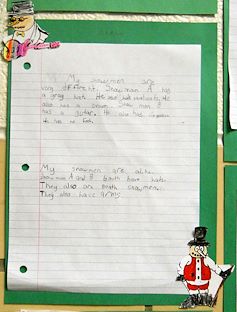 My snowmen are
very different. Snowman A has
a gray hat. He
also has a Snow man B
has a guitar. He also has
He has no
My snowmen are alike.
Snowman A and B both have hats.
They also are both snowmen.
They also have arms.